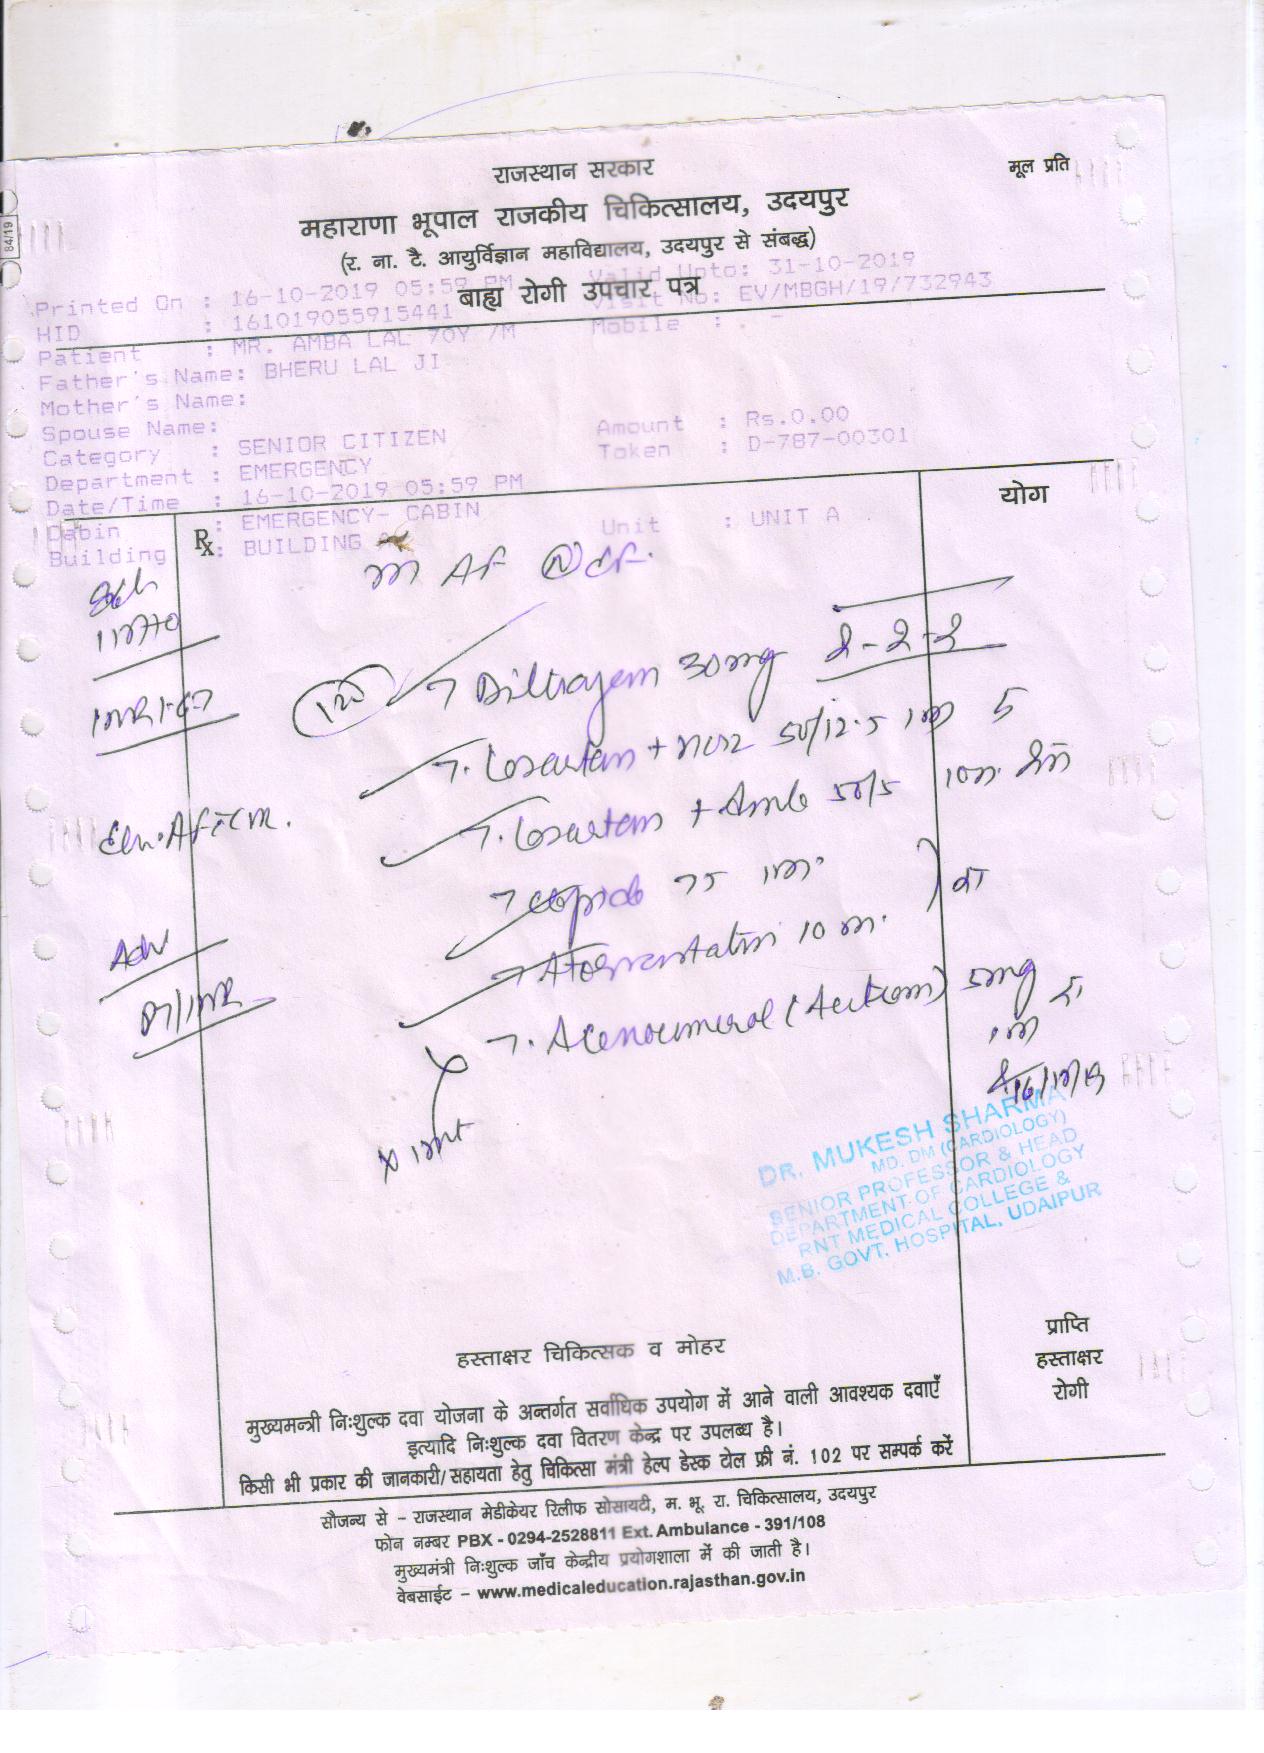 राजस्थान सरकार
मूल प्रति
महाराणा भूपाल राजकीय चिकित्सालय, उदयपुर
(र. ना. टै. आयुर्विज्ञान महाविद्यालय, उदयपुर से संबद्ध)
बाह्य रोगी उपचार पत्र
84/19
Printed On : 16-10-2019 05:59 PM Valid Upto: 31-10-2019
HID : 161019055915441 Visit No: EV/MBGH/19/732943
Patient : MR. AMBA LAL 70Y /M Mobile : . -
Father's Name: BHERU LAL JI
Mother's Name:
Spouse Name:
Category : SENIOR CITIZEN Amount : Rs.0.00
Department : EMERGENCY Token : D-787-00301
Date/Time : 16-10-2019 05:59 PM
Cabin : EMERGENCY- CABIN Unit : UNIT A
Building : BUILDING
योग
Rx
AF
Diltiazem 30mg 2-2-2
INR 1.67
Losartan + 50/12.5
Losartan + Amlo 50/5
75
Atorvastatin 10
Adv
PT/INR
5mg
16/10/19
DR. MUKESH SHARMA
MD. DM (CARDIOLOGY)
SENIOR PROFESSOR & HEAD
DEPARTMENT OF CARDIOLOGY
RNT MEDICAL COLLEGE &
M.B. GOVT. HOSPITAL, UDAIPUR
हस्ताक्षर चिकित्सक व मोहर
प्राप्ति
हस्ताक्षर
रोगी
मुख्यमन्त्री निःशुल्क दवा योजना के अन्तर्गत सर्वाधिक उपयोग में आने वाली आवश्यक दवाएँ
इत्यादि निःशुल्क दवा वितरण केन्द्र पर उपलब्ध है।
किसी भी प्रकार की जानकारी/सहायता हेतु चिकित्सा मंत्री हेल्प डेस्क टोल फ्री नं. 102 पर सम्पर्क करें
सौजन्य से – राजस्थान मेडीकेयर रिलीफ सोसायटी, म. भू. रा. चिकित्सालय, उदयपुर
फोन नम्बर PBX - 0294-2528811 Ext. Ambulance - 391/108
मुख्यमंत्री निःशुल्क जाँच केन्द्रीय प्रयोगशाला में की जाती है।
वेबसाईट – www.medicaleducation.rajasthan.gov.in